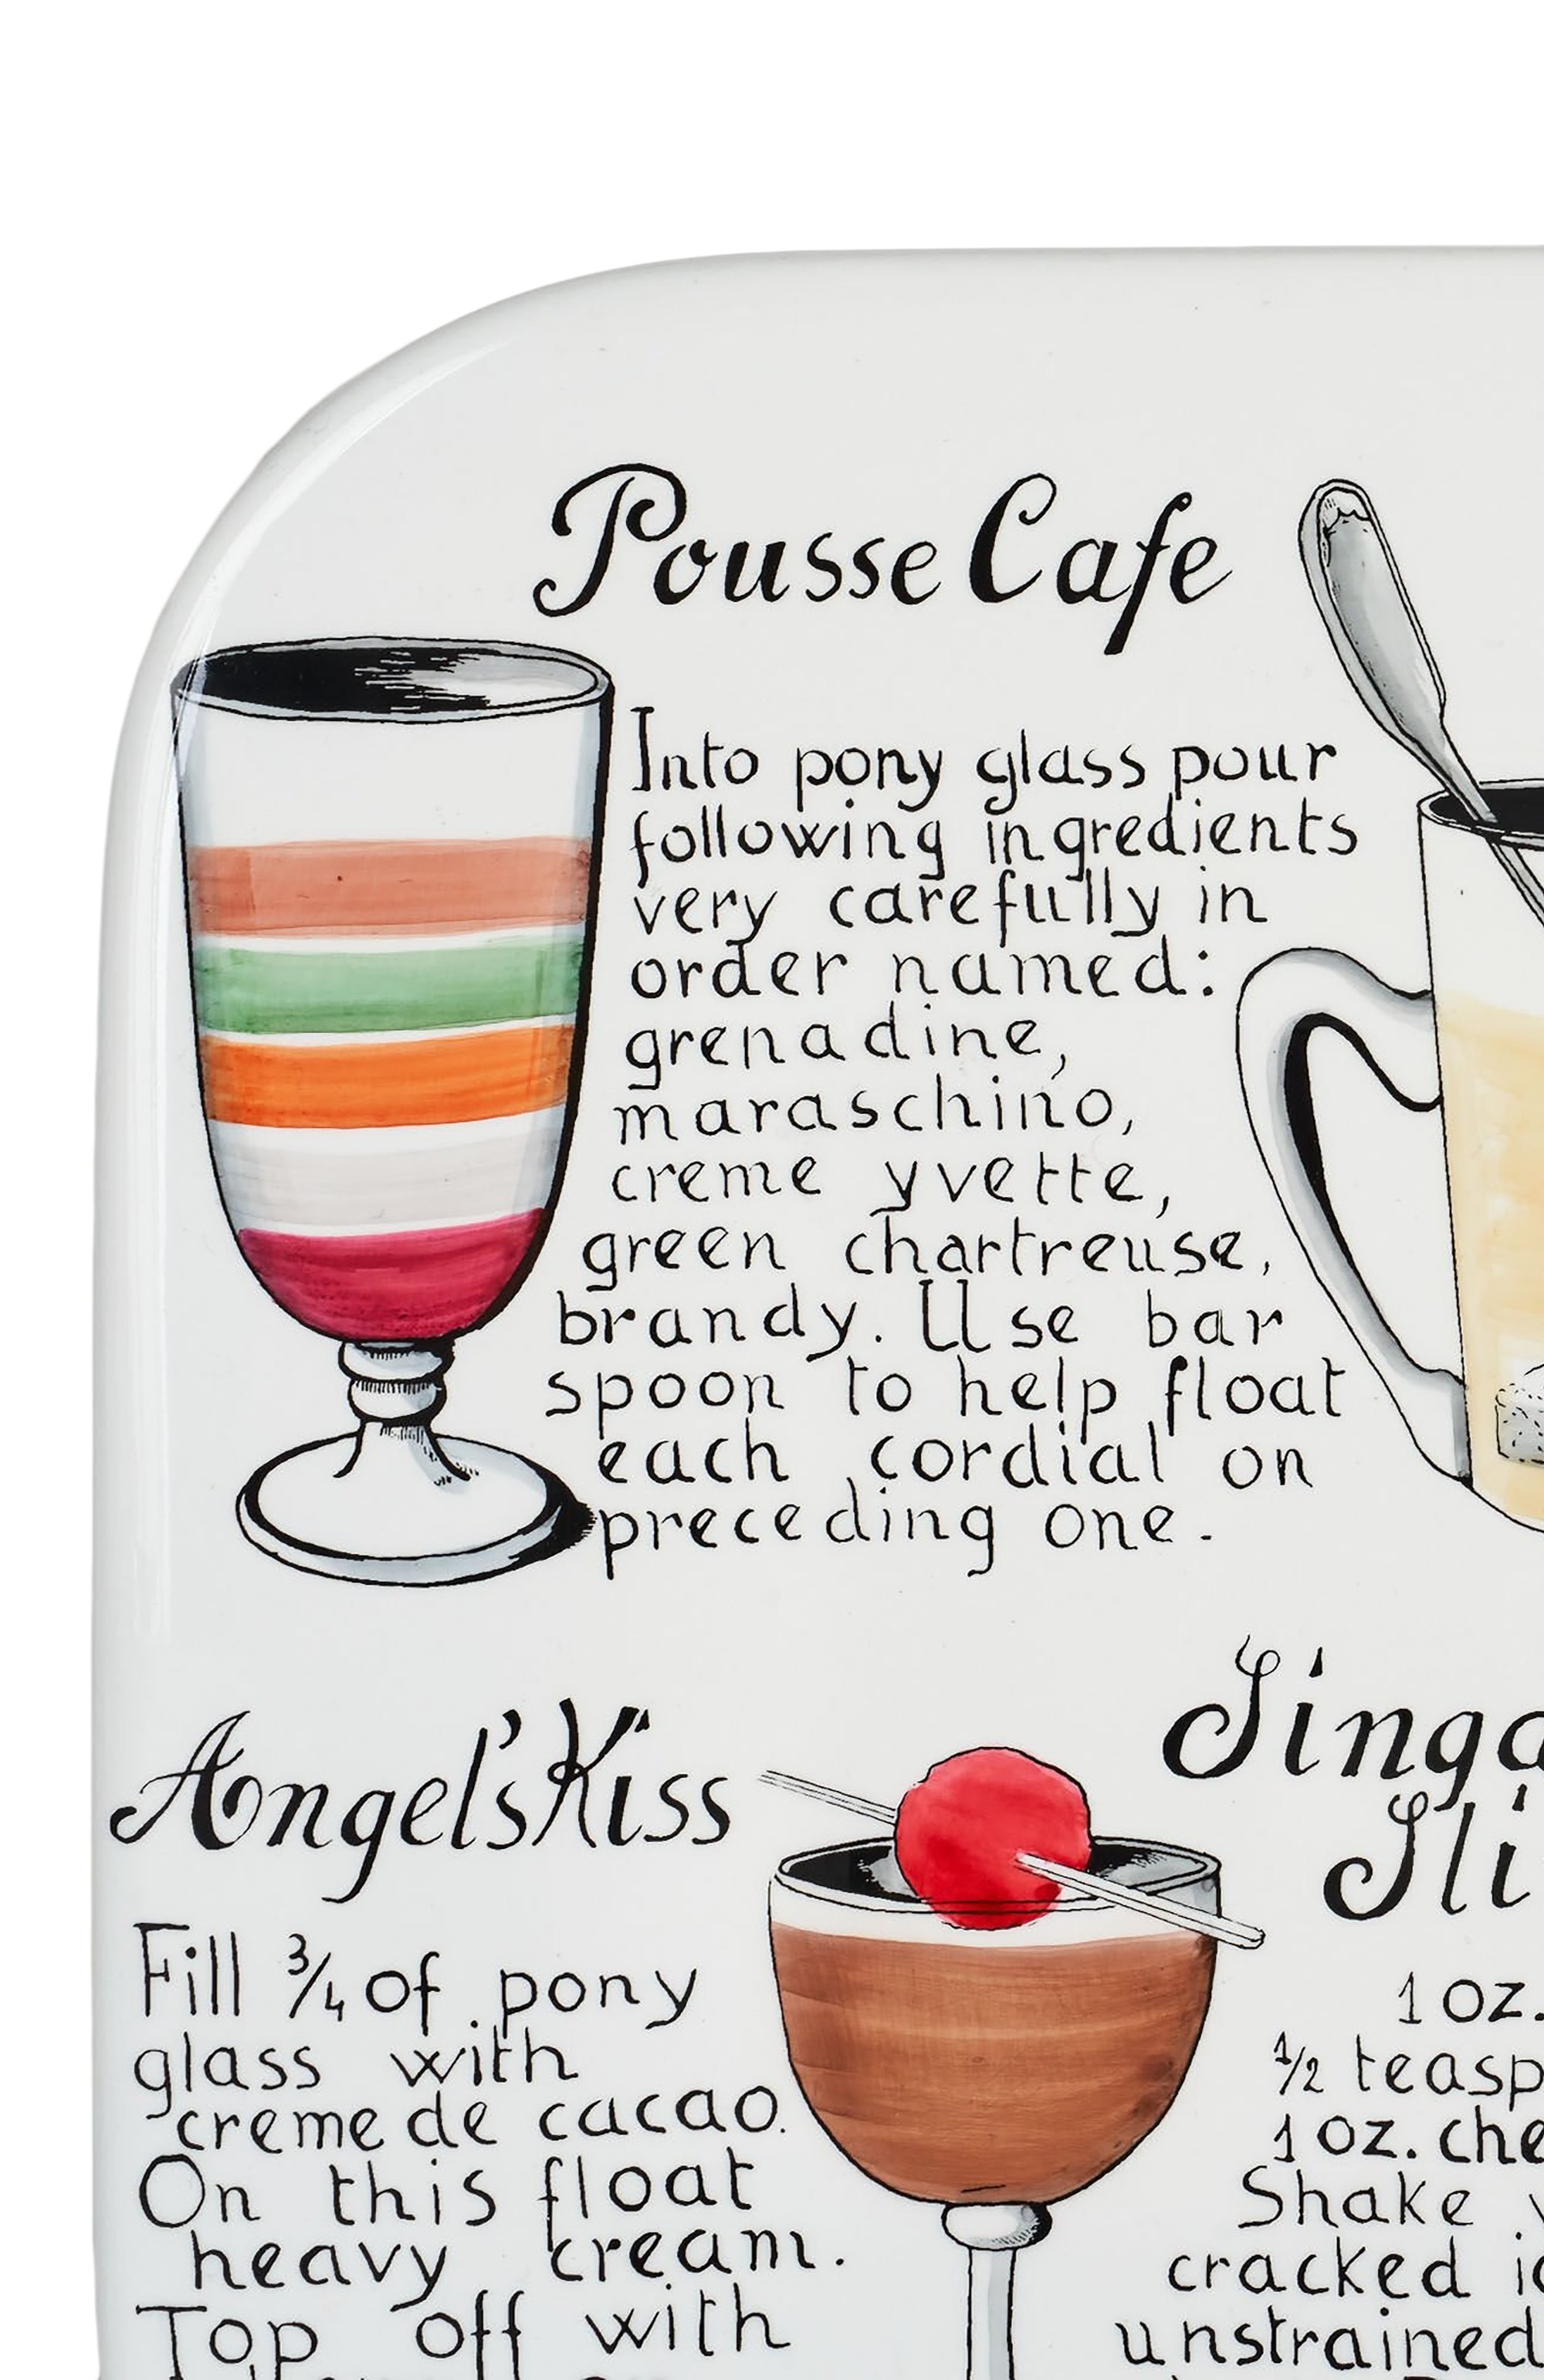 Pousse Cafe
Into pony glass pour
following ingredients
very carefully in
order named:
grenadine,
maraschino,
creme yvette,
green chartreuse,
brandy. Use bar
spoon to help float
each cordial on
preceding one.
Angel's Kiss
Fill ¾ of pony
glass with
creme de cacao.
On this float
heavy cream.
Top off with
1 oz.
½ teasp
1 oz. che
Shake
cracked ic
unstrained